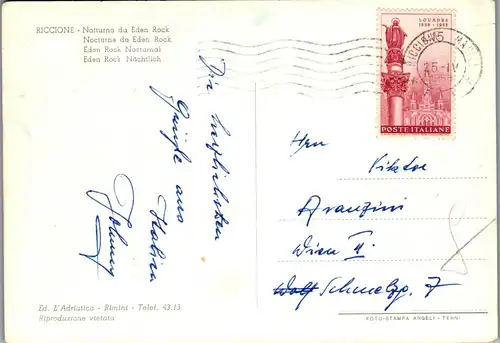 RICCIONE - Notturno da Eden Rock
Nocturne da Eden Rock
Eden Rock Nocturnal
Eden Rock Nächtlich
Die herzlichsten
Grüße aus
Italien
Johnny
Ed. L'Adriatica - Rimini - Telef. 43.13
Riproduzione vietata
LOURDES
1858 - 1958
POSTE ITALIANE
RICCIONE
Hrn
Viktor
Avanzini
Wien II
Wolf Schmelzg. 7
FOTO-STAMPA ANGELI - TERNI